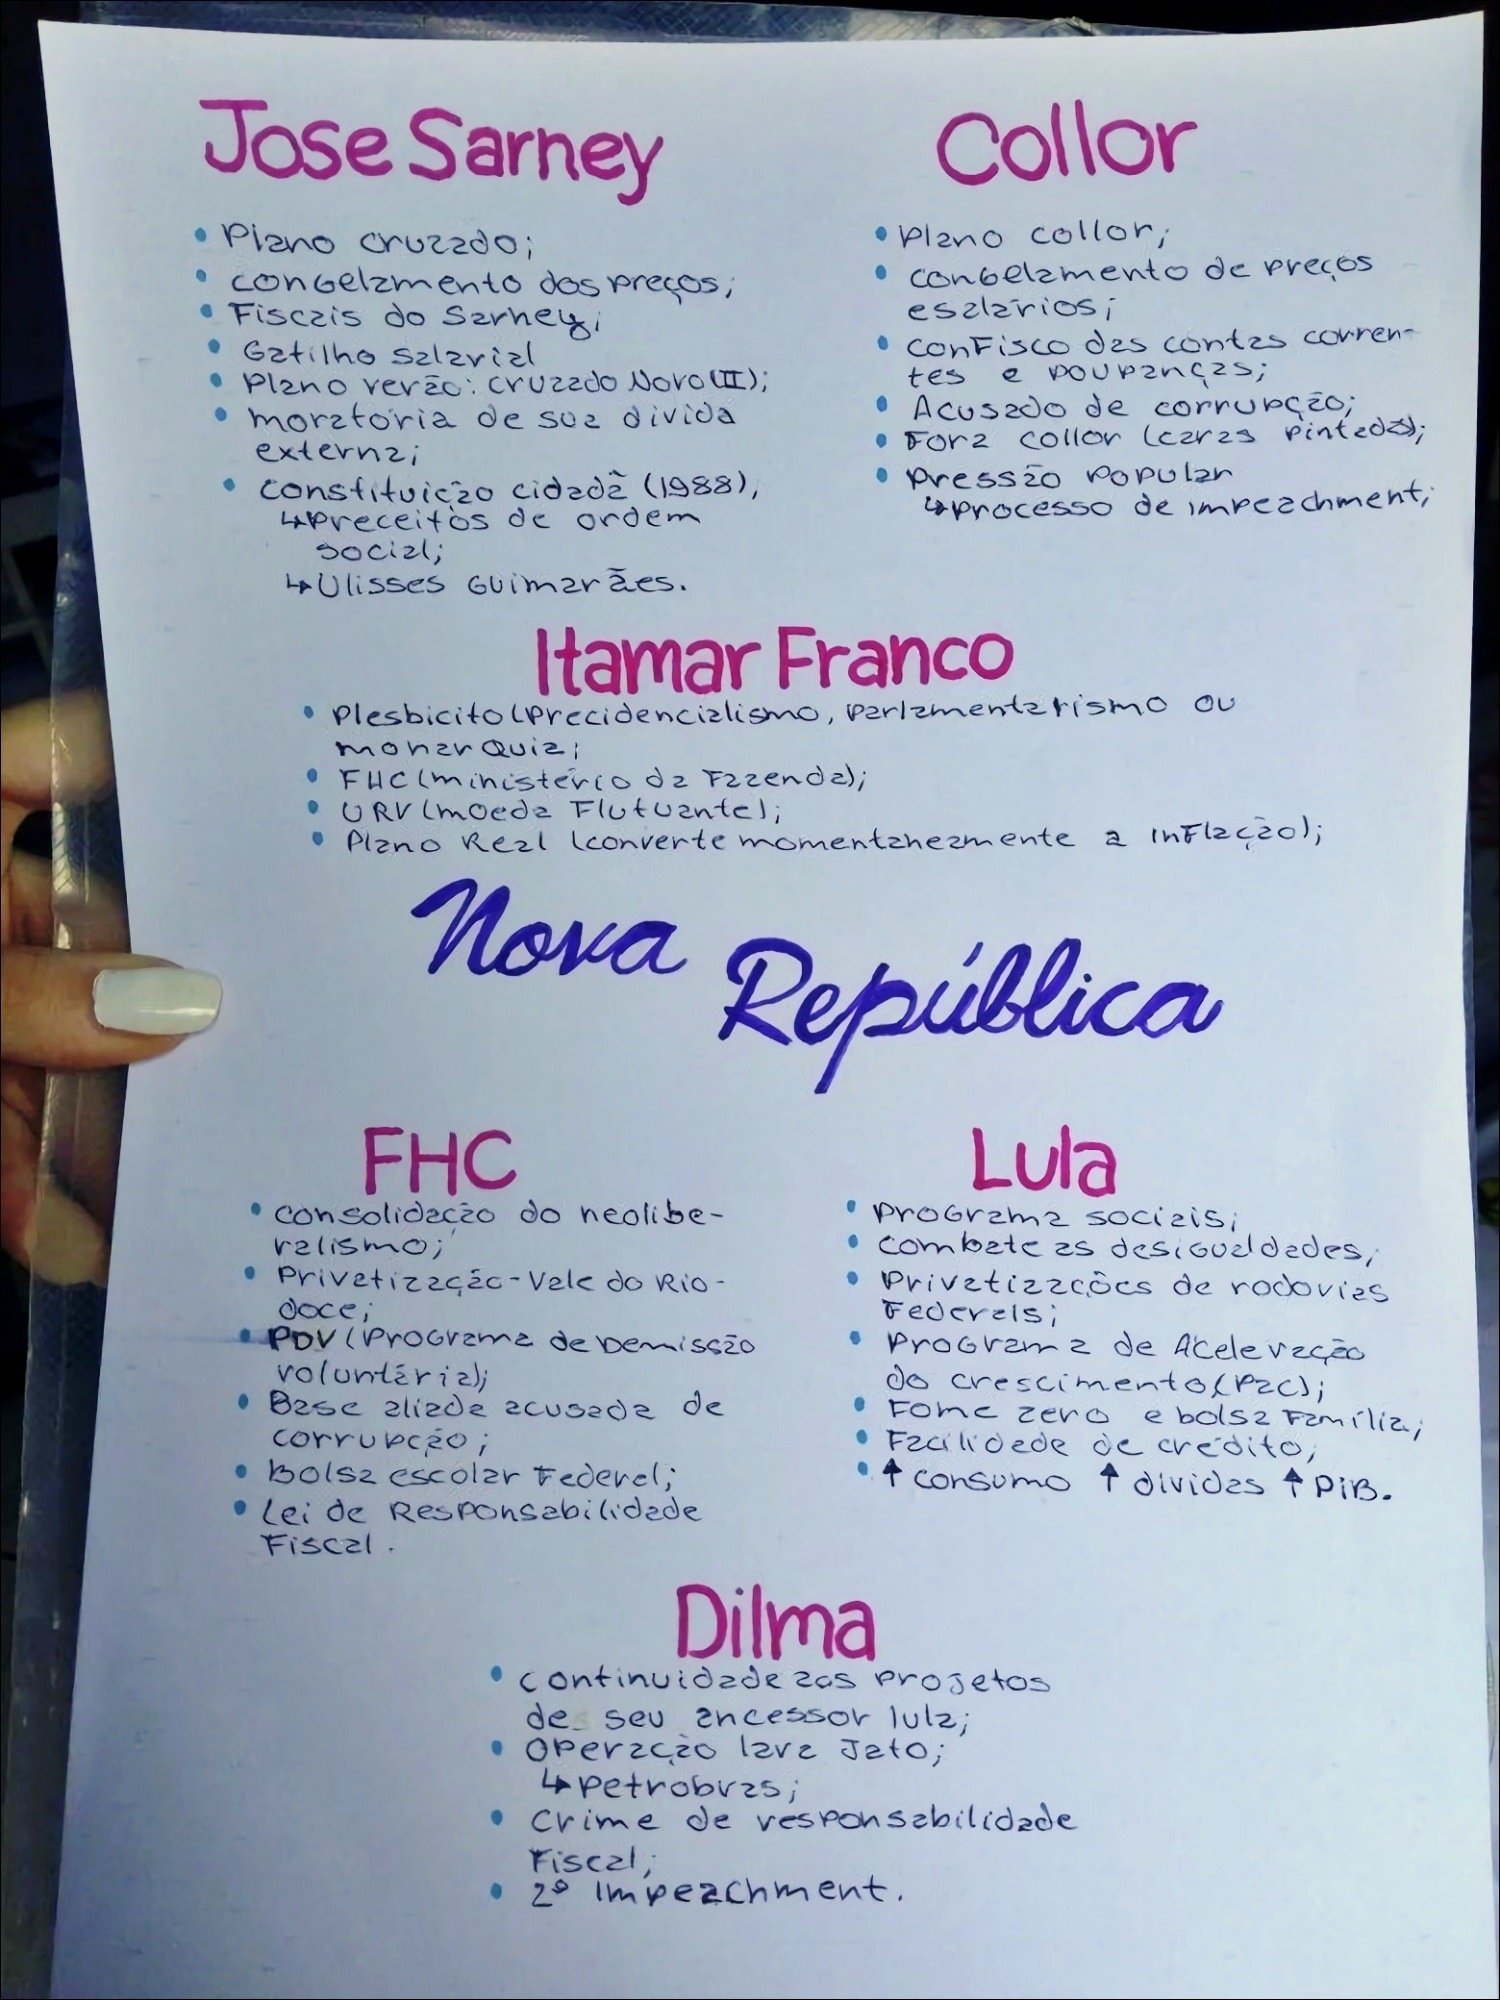 Jose Sarney
• Plano cruzado;
• congelamento dos preços;
• Fiscais do Sarney;
• Gatilho salarial
• Plano verão: cruzado Novo (II);
• moratória de sua divida
externa;
• constituição cidadã (1988),
↳ preceitos de ordem
social;
↳ Ulisses Guimarães.
Collor
• Plano collor;
• congelamento de preços
e salários;
• confisco das contas corren-
tes e poupanças;
• Acusado de corrupção;
• Fora collor (caras pintadas);
• pressão popular
↳ processo de impeachment;
Itamar Franco
• Plesbicito (precidencialismo, parlamentarismo ou
monarquia;
• FHC (ministério da Fazenda);
• URV (moeda Flutuante);
• Plano Real (converte momentaneamente a inflação);
Nova República
FHC
• consolidação do neolibe-
ralismo;
• Privatização - Vale do Rio-
doce;
• PDV (Programa de Demissão
voluntária);
• Base aliada acusada de
corrupção;
• Bolsa escolar Federal;
• Lei de Responsabilidade
Fiscal.
Lula
• Programa sociais;
• combate as desigualdades,
• Privatizações de rodovias
Federais;
• Programa de Aceleração
do crescimento (Pac);
• Fome zero e bolsa Família;
• Facilidade de crédito;
• ↑ consumo ↑ dividas ↑ PIB.
Dilma
• continuidade aos projetos
de seu ancessor lula;
• Operação lava Jato;
↳ Petrobras;
• crime de responsabilidade
Fiscal;
• 2º Impeachment.